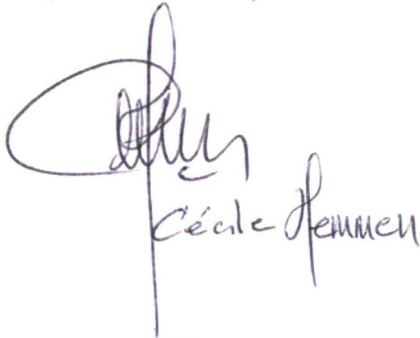 Cécile Hemmen